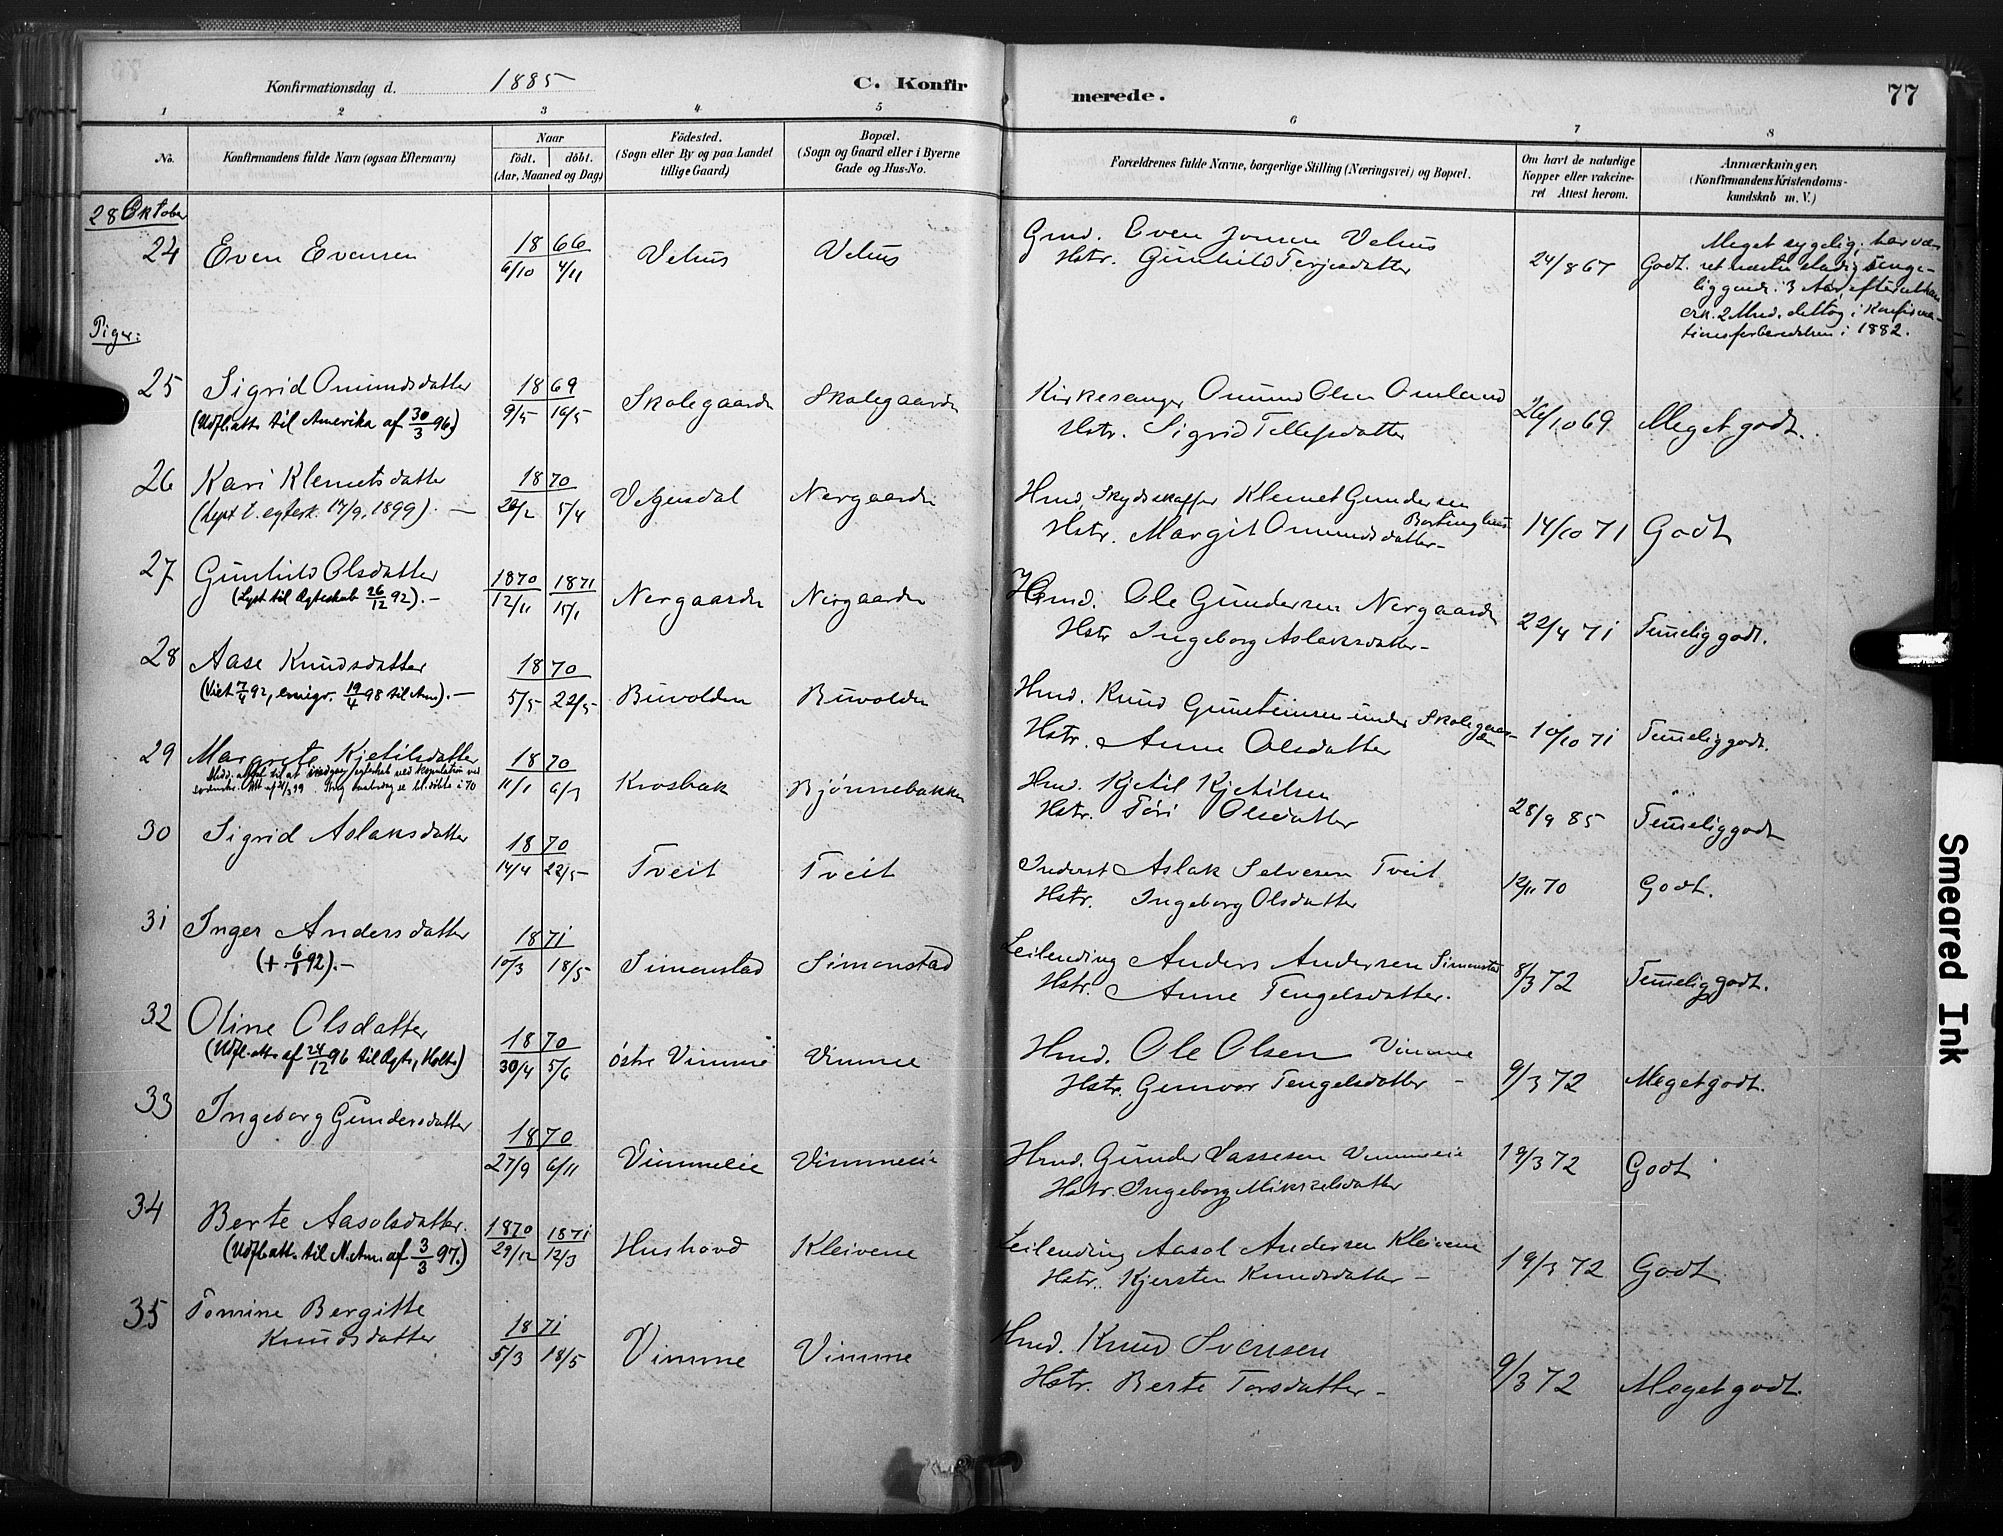 Konfirmationsdag d. 1885 C. Konfirmerede. 77
1 2 3 4 5 6 7 8
No. Konfirmandens fulde Navn (ogsaa Efternavn) Naar födt. döbt. (Aar, Maaned og Dag) Födested. (Sogn eller By og paa Landet tillige Gaard) Bopæl. (Sogn og Gaard eller i Byerne Gade og Hus-No. Forældrenes fulde Navne, borgerlige Stilling (Næringsvei) og Bopæl. Om havt de naturlige Kopper eller vakcineret Attest herom. Anmærkninger. (Konfirmandens Kristendomskundskab m. V.)
28 Oktober
24 Even Evensen 1866 6/10 4/11 Vehus Vehus Gmd. Even Jonsen Vehus
Hstr. Gunhild Terjesdatter 24/8 67 Godt. Meget sygelig; har været næsten stadig sengeliggende. 3 Aar,
2 Mnd. deltog i Konfirmationsforberedelsen i 1882.
Piger:
25 Sigrid Omundsdatter 1869 9/5 16/5 Skolegaarden Skolegaarden Kirkesanger Omund Olsen Omland
(Udfl.att. til Amerika af 30/3 96) Hstr. Sigrid Tellefsdatter 26/10 69 Meget godt.
26 Kari Klemetsdatter 1870 5/4 Nergaarden Hmd. Skydsskaffer Klemet Gundersen
(Lyst t. egtesk. 17/9, 1899). — Hstr. Margit Omundsdatter – 14/10 71 Godt
27 Gunhild Olsdatter 1870 12/11 1871 15/1 Nergaarden Nergaarden Hmd. Ole Gundersen Nergaarden
(Lyst til Ægteskab 26/12 92). – Hstr Ingeborg Aslaksdatter – 22/4 71 Temelig godt.
28 Aase Knudsdatter 1870 5/5 22/5 Buvolden Buvolden Hmd. Knud Gunsteinsen under Skolegaarden
(Viet 7/4 92, emigr. 19/4 98 til Am). – Hstr. Anne Olsdatter 10/10 71 Temelig godt.
29 Margrete Kjetilsdatter 1870 11/1 Krosbak Bjönnebakken Hmd. Kjetil Kjetilsen
Hstr. Töri Olsdatter 28/9 85 Temelig godt
30 Sigrid Aslaksdatter 1870 14/4 22/5 Tveit Tveit Inderst Aslak Selvesen Tveit
Hstr. Ingeborg Olsdatter 70 Godt.
31 Inger Andersdatter 1871 10/3 18/5 Simonstad Simonstad Leilending Anders Andersen Simonstad
(+ 6/1 92). – Hstr. Anne Tengelsdatter. 8/3 72 Temelig godt.
32 Oline Olsdatter 1870 30/4 5/6 östre Vimme Vimme Hmd. Ole Olsen Vimme
(Udfl.att. af 24/12 96 til Ægts, Holt.) Hstr. Gunvor Tengelsdatter – 9/3 72 Meget godt.
33 Ingeborg Gundersdatter 1870 27/9 6/11 Vimmeeie Vimmeeie Hmd. Gunder Lassesen Vimmeeie
Hstr. Ingeborg Mikkelsdatter 19/3 72 Godt
34 Berte Aasolsdatter. 1870 29/12 1871 12/3 Hushovd Kleivene Leilending Aasol Andersen Kleivene
(Udfl.att. til N.Am. af 3/3 97.) Hstr. Kjersten Knudsdatter – 19/3 72 Godt
35 Tomine Bergitte
Knudsdatter 1871 5/3 18/5 Vimme Vimme Hmd. Knud Svensen
Hstr. Berte Torsdatter – 9/3 72 Meget godt.
Smeared Ink